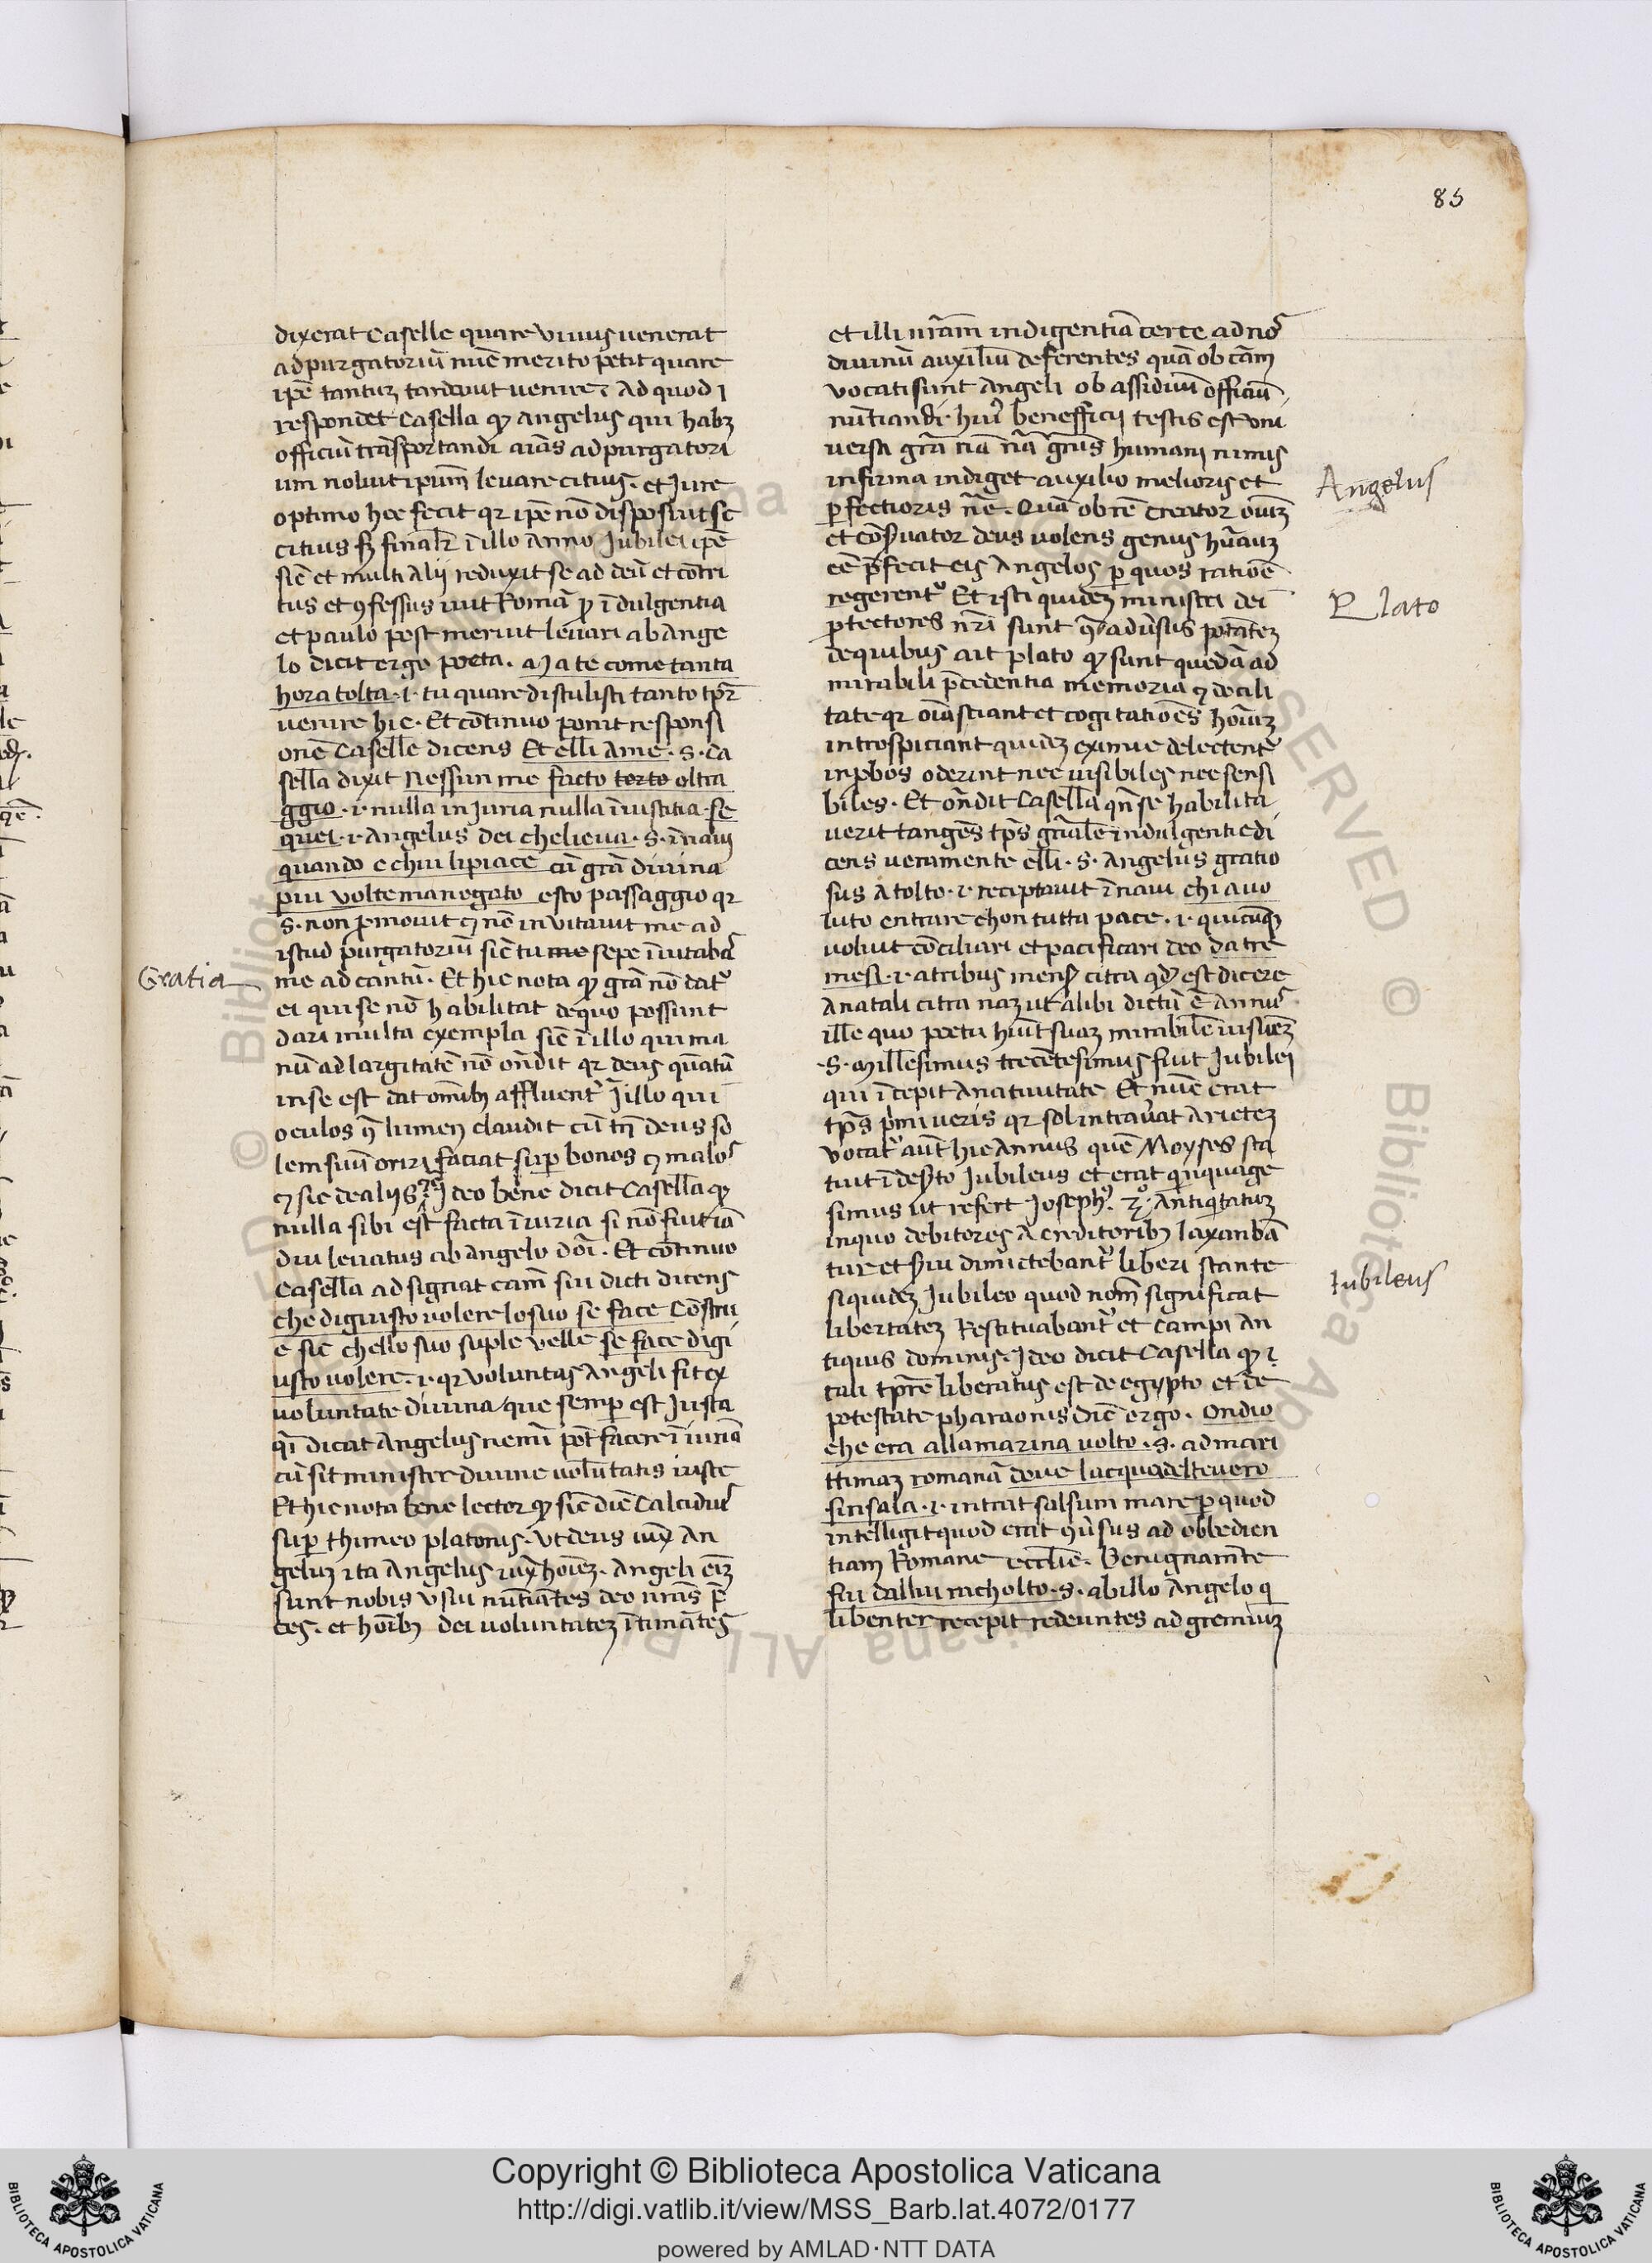 85
dixerat Caselle quare vivus venerat
ad purgatoriū nūc merito petit quare
ip̄e tantuȝ tardavit venire. Ad quod
respondet Casella qđ angelus qui habȝ
officiū trāsportandi aīas ad purgatori
um noluit ip̄um levare citius. et jure
optimo hec fecit qr ip̄e nō disposuit se
citius sȝ finalr̄ ī illo anno Jubilei ip̄e
sic̄ et multi alij reduxit se ad deū et cōtri
tus et ꝯfessus ivit Romā ꝓ īdulgentia
et paulo post meruit levari ab ange
lo dicit ergo poeta. Ma te come tanta
hora tolta .i. tu quare distulisti tanto tp̄r
venire hic. Et cōtinuo ponit responsi
onē Caselle dicens Et elli a me .s. Ca
sella dixit Nessun me facto torto oltra
ggio .i. nulla injuria nulla īiustitia. se
quei .i. angelus dei che lieva .s. ī navi
quando e chui li piace cū grā divina
piu volte ma negato esto passaggio qr
s. non ꝓmovit ⁊ nō invitavit me ad
istud purgatoriū sic̄ tu me sepe īvitabas
me ad cantū. Et hic nota qđ grā nō dat᷑
ei qui se nō habilitat de quo possunt
dari multa exempla sic̄ ī illo qui ma
nū ad largitatē nō oñdit qr deus quātū
in se est dat omībꝫ affluent᷑ ī illo qui
oculos ꝯ̄ lumen claudit cū tn̄ deus so
lem suū oriri faciat suꝑ bonos ⁊ malos
⁊ sic de alijs Ideo bene dicit Casella qđ
nulla sibi est facta īiuria si nō fuit iā
diu levatus ab angelo dn̄i. Et cōtinuo
Casella adsignat cam̄ sui dicti dicens
che di giusto volere lo suo se face Constru
e sic chello suo suple velle se face di gi
usto volere .i. qr voluntas Angeli fit ex
voluntate divina que semꝑ est justa
qī dicat Angelus nemī pōt facere īiuriā
cū sit minister divine volūtatis iuste
Et hic nota bene lector qđ sic̄ dic̄ Calcidius
suꝑ thimeo platonis. Ut deus iux̄ an
geluȝ ita angelus iux̄ hoīeȝ. Angeli eīȝ
sunt nobis usui nūtiātes deo nr̄as p̄
ces. et hoībꝫ dei voluntateȝ ītimātes
et illi nr̄am indigentiā certe ad nos
divinū auxiliū deferentes quā ob cām
vocati sunt Angeli ob assiduū officiū
nūtiandi. huiꝰ benefficij testis est uni
versa grā nā ngenus humani nimis
infirma indiget auxilio melioris et
ꝑfectioris nāe. Quā ob rē creator oīuȝ
et cōservator deus volens genus hūanuȝ
eē p̄fecit eis Angelos ꝑ quos ratiōe
regerent᷑ Et isti quideȝ ministri dei
ꝓtectores nr̄i sunt adversus potāteȝ
de quibus ait plato qđ sunt quedā ad
mirabili p̄cedentia memoria ⁊ docili
tate qr oīa sciant et cogitatiōes hoīuȝ
introspiciant quideȝ eximie delectent᷑
inꝓbos oderint nec visibiles nec sensi
biles. Et oñdit Casella qn̄ se habilita
verit tangēs tp̄s gn̄ale indulgentie di
cens veramente elli .s. Angelus gratio
sus a tolto .i. receptavit ī navi chi a vo
luto entrare chon tutta pace .i. quicūqȝ
voluit cōciliari et pacificari deo da tre
mesi .i. a tribus mensibꝫ citra qđ est dicere
a natali citra naȝ ut alibi dictū ē annus
ille quo poeta h̄uit suaȝ mirabilē visiōeȝ
.s. Millesimus trecētesimus fuit Jubilei
qui īcepit a nativitate Et nūc erat
tp̄s p̄mi veris qr sol intraverat Arieteȝ
vocat᷑ aut̄ hic annus quē Moyses sta
tuit ī des̄to Jubileus et erat quinquage
simus ut refert Josephꝰ. 3º. Antiquitatuȝ
in quo debitores a creditoribꝫ laxanbā
tur et s̄vi dimictebant᷑ liberi stante
siquideȝ Jubileo quod nom̄ significat
libertateȝ Restituabant᷑ et campi an
tiquis dominis. Ideo dicit Casella qđ ī
tali tp̄re liberatus est de egypto et de
potestate pharaonis dic̄ ergo. Ondio
che era alla marina volto .s. ad mari
ttimaȝ romanā dove lacqua del tevero
sinsala .i. intrat salsum mare ꝑ quod
intelligit quod erat ꝯv̄sus ad obbedien
tiam Romane ecclīe. Benignam̄te
fui dallui richolto .s. ab illo Angelo q
libenter recepit redeuntes ad gremiuȝ
Gratia
Angelus
Plato
Iubileus
Copyright © Biblioteca Apostolica Vaticana
http://digi.vatlib.it/view/MSS_Barb.lat.4072/0177
powered by AMLAD·NTT DATA
BIBLIOTECA APOSTOLICA VATICANA
BIBLIOTECA APOSTOLICA VATICANA